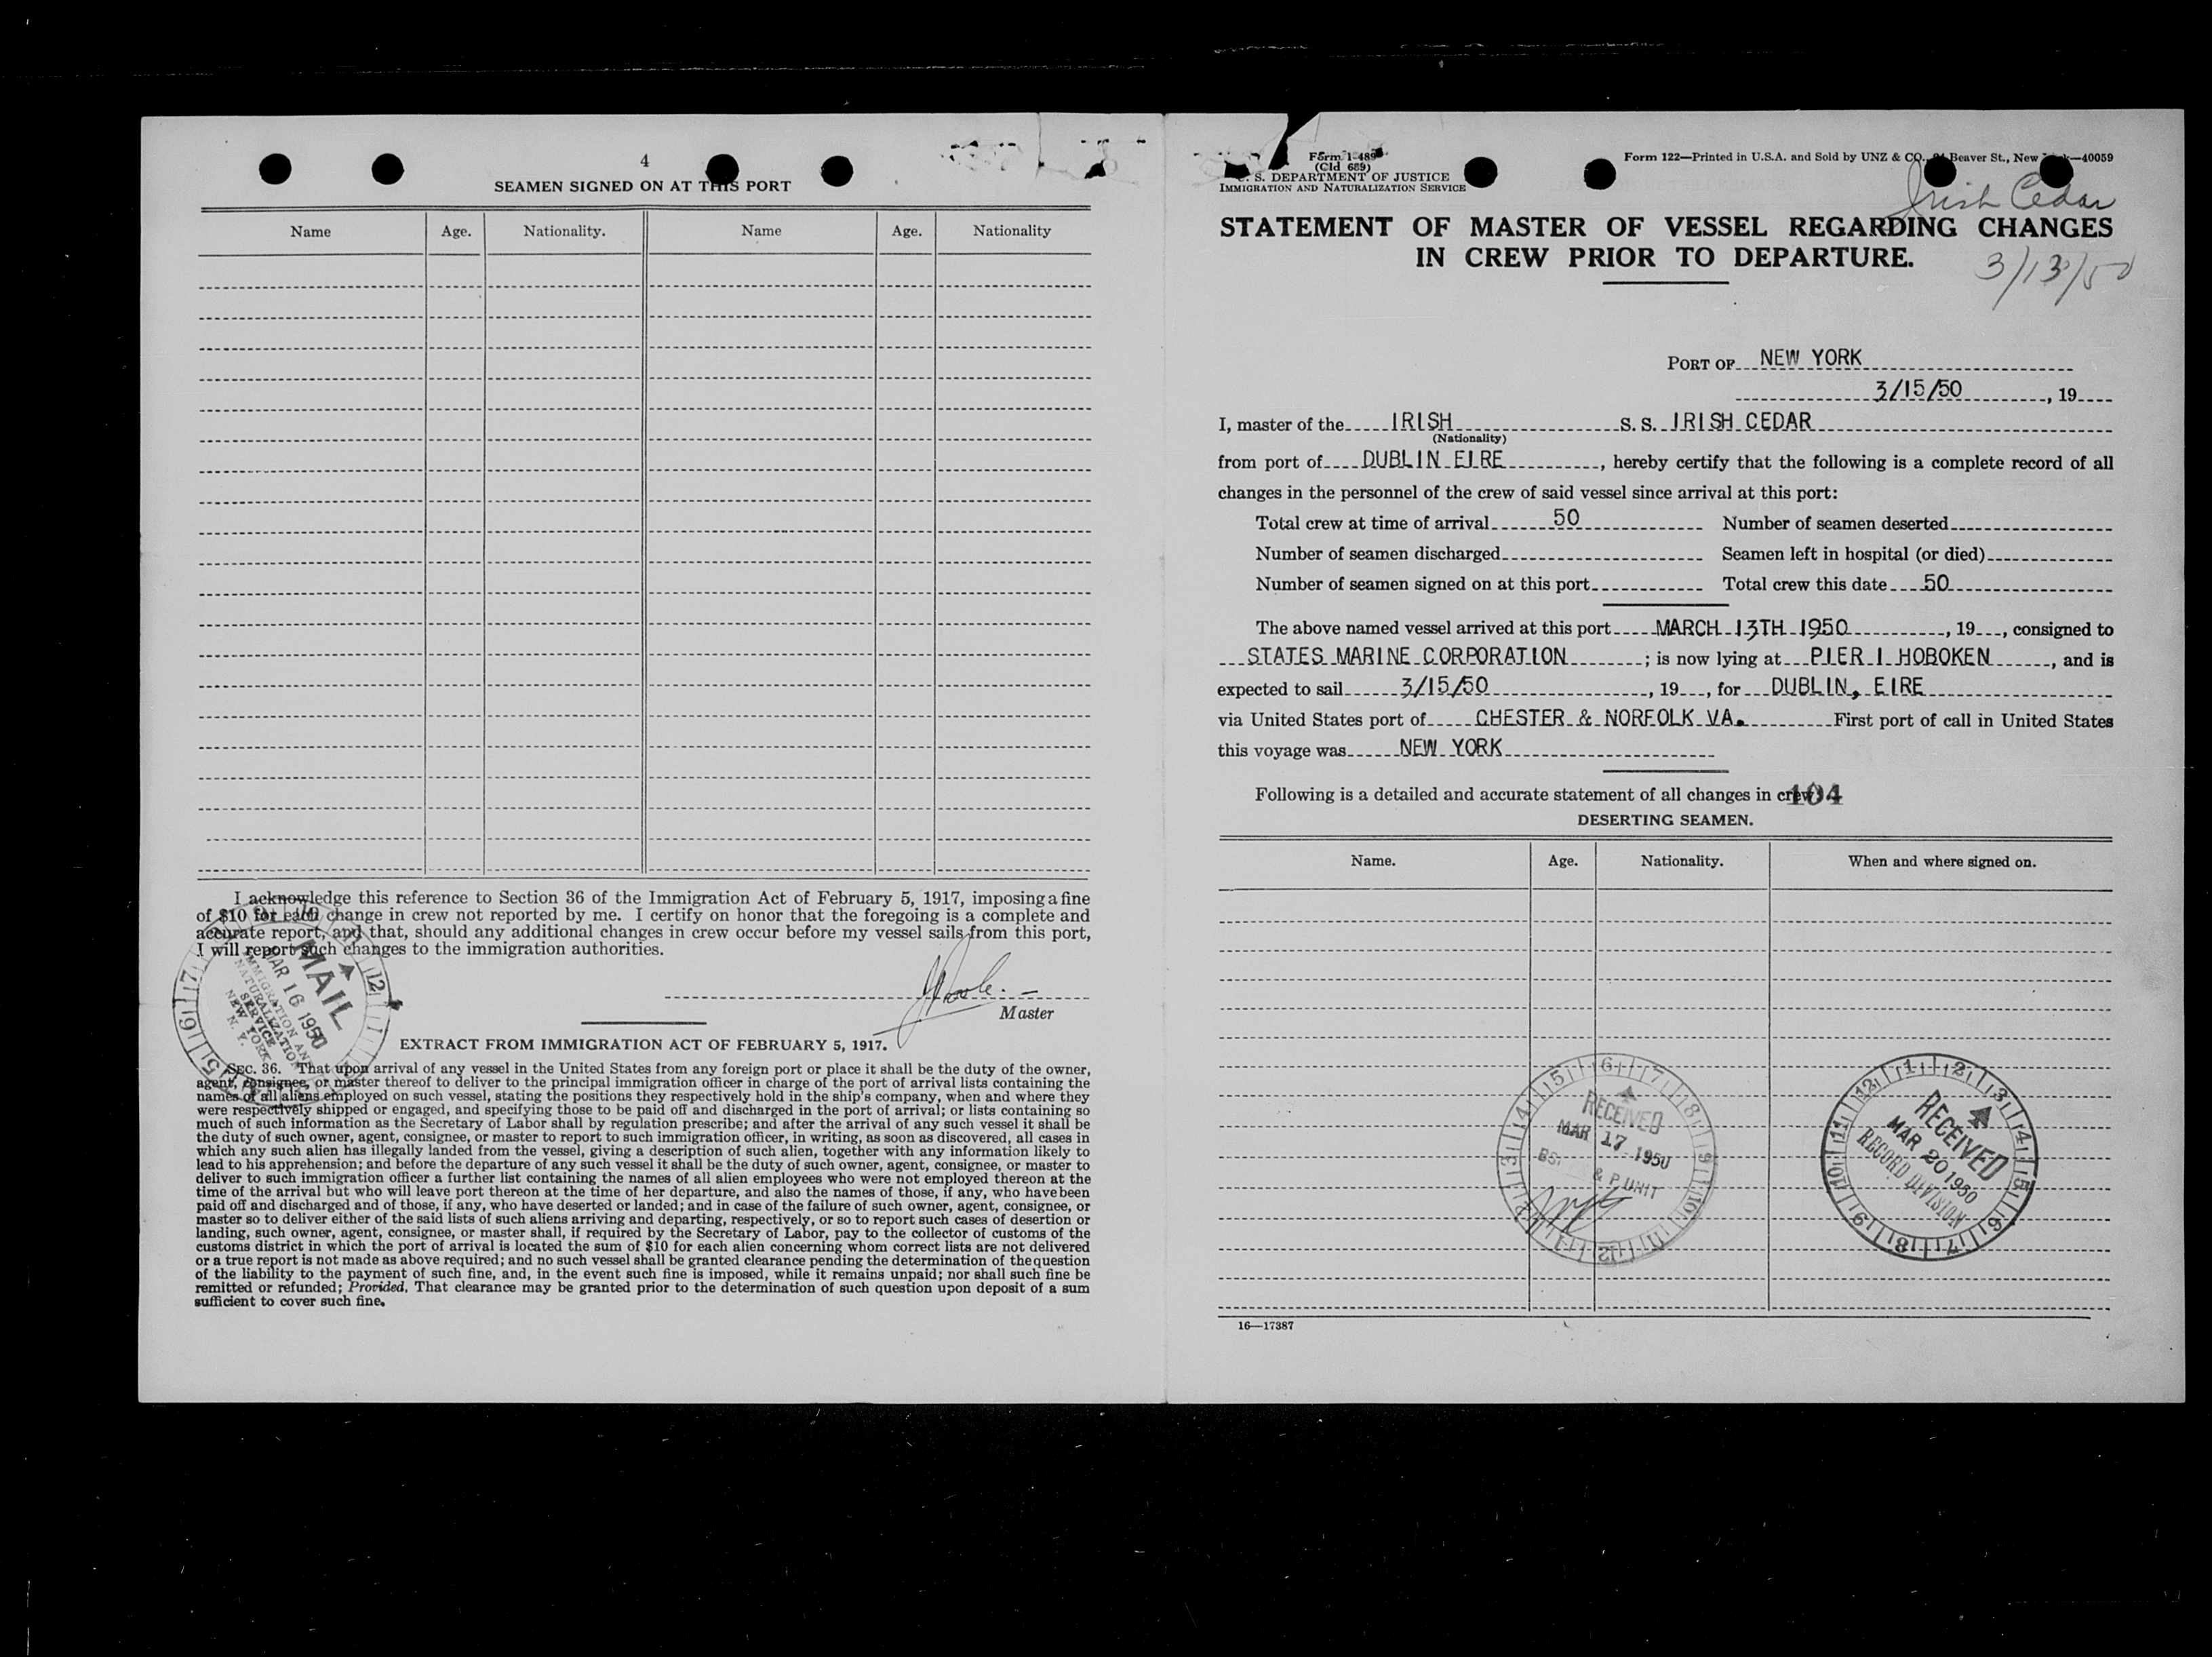 4
SEAMEN SIGNED ON AT THIS PORT
Name Age. Nationality. Name Age. Nationality
I acknowledge this reference to Section 36 of the Immigration Act of February 5, 1917, imposing a fine
of $10 for each change in crew not reported by me. I certify on honor that the foregoing is a complete and
accurate report, and that, should any additional changes in crew occur before my vessel sails from this port,
I will report such changes to the immigration authorities.
MAIL
MAR 16 1950
IMMIGRATION AND
NATURALIZATION
SERVICE
NEW YORK
N. Y.
Master
EXTRACT FROM IMMIGRATION ACT OF FEBRUARY 5, 1917.
SEC. 36. That upon arrival of any vessel in the United States from any foreign port or place it shall be the duty of the owner,
agent, consignee, or master thereof to deliver to the principal immigration officer in charge of the port of arrival lists containing the
names of all aliens employed on such vessel, stating the positions they respectively hold in the ship's company, when and where they
were respectively shipped or engaged, and specifying those to be paid off and discharged in the port of arrival; or lists containing so
much of such information as the Secretary of Labor shall by regulation prescribe; and after the arrival of any such vessel it shall be
the duty of such owner, agent, consignee, or master to report to such immigration officer, in writing, as soon as discovered, all cases in
which any such alien has illegally landed from the vessel, giving a description of such alien, together with any information likely to
lead to his apprehension; and before the departure of any such vessel it shall be the duty of such owner, agent, consignee, or master to
deliver to such immigration officer a further list containing the names of all alien employees who were not employed thereon at the
time of the arrival but who will leave port thereon at the time of her departure, and also the names of those, if any, who have been
paid off and discharged and of those, if any, who have deserted or landed; and in case of the failure of such owner, agent, consignee, or
master so to deliver either of the said lists of such aliens arriving and departing, respectively, or so to report such cases of desertion or
landing, such owner, agent, consignee, or master shall, if required by the Secretary of Labor, pay to the collector of customs of the
customs district in which the port of arrival is located the sum of $10 for each alien concerning whom correct lists are not delivered
or a true report is not made as above required; and no such vessel shall be granted clearance pending the determination of the question
of the liability to the payment of such fine, and, in the event such fine is imposed, while it remains unpaid; nor shall such fine be
remitted or refunded; Provided, That clearance may be granted prior to the determination of such question upon deposit of a sum
sufficient to cover such fine.
Form I-489
(Old 689)
U. S. DEPARTMENT OF JUSTICE
IMMIGRATION AND NATURALIZATION SERVICE
Form 122—Printed in U.S.A. and Sold by UNZ & CO., Beaver St., New —40059
Irish Cedar
STATEMENT OF MASTER OF VESSEL REGARDING CHANGES
IN CREW PRIOR TO DEPARTURE.
3/13/50
PORT OF NEW YORK
3/15/50, 19
I, master of the IRISH S. S. IRISH CEDAR
(Nationality)
from port of DUBLIN EIRE, hereby certify that the following is a complete record of all
changes in the personnel of the crew of said vessel since arrival at this port:
Total crew at time of arrival 50 Number of seamen deserted
Number of seamen discharged Seamen left in hospital (or died)
Number of seamen signed on at this port Total crew this date 50
The above named vessel arrived at this port MARCH 13TH 1950, 19, consigned to
STATES MARINE CORPORATION; is now lying at PIER 1 HOBOKEN, and is
expected to sail 3/15/50, 19, for DUBLIN, EIRE
via United States port of CHESTER & NORFOLK VA. First port of call in United States
this voyage was NEW YORK
Following is a detailed and accurate statement of all changes in crew: 104
DESERTING SEAMEN.
Name. Age. Nationality. When and where signed on.
RECEIVED
MAR 17 1950
& P UNIT
RECEIVED
MAR 20 1950
RECORD DIVISION
16—17387